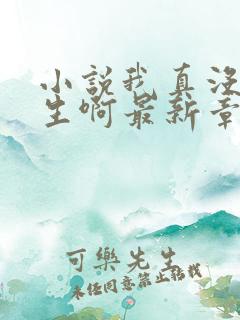 小說我真沒
生啊最新章
可樂先生
未経同意禁止轉載